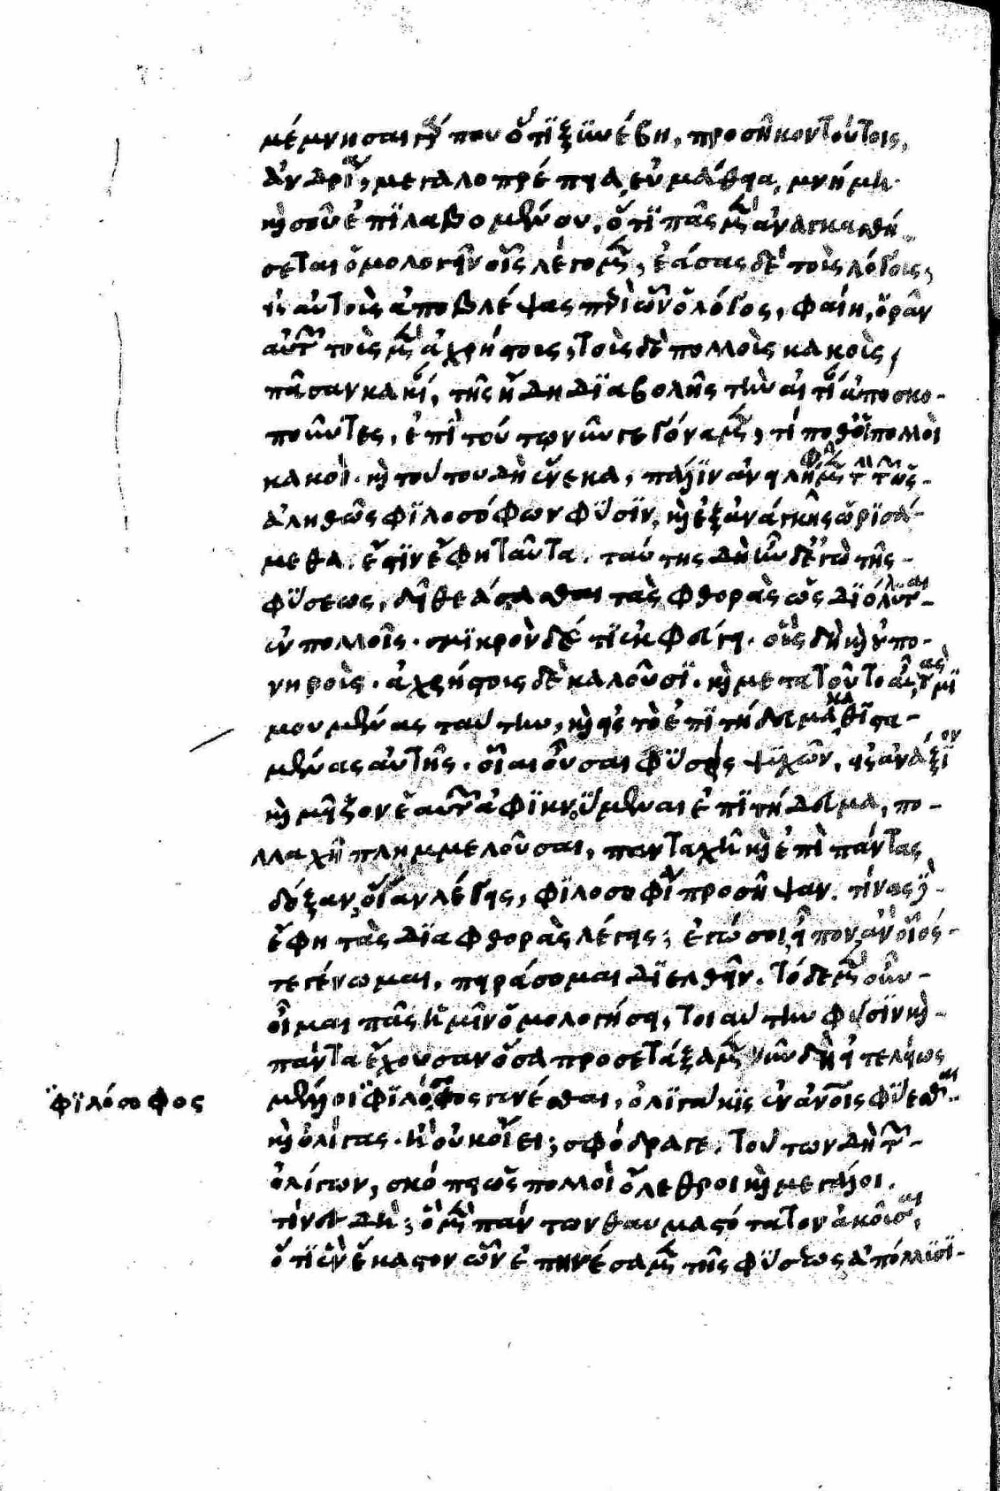 μέμνησαι γάρ που ὅτι ξυνέβη, προσῆκον τούτοις,
ἀνδρία, μεγαλοπρέπεια, εὐμάθεια, μνήμη.
καὶ σοῦ ἐπιλαβομένου, ὅτι πᾶς μὲν ἀναγκασθή-
σεται ὁμολογεῖν οἷς λέγομεν, ἐάσας δὲ τοὺς λόγους,
εἰς αὐτοὺς ἀποβλέψας περὶ ὧν ὁ λόγος, φαίη, ὁρᾶν
αὐτῶν τοὺς μὲν ἀχρήστους, τοὺς δὲ πολλοὺς κακοὺς,
πᾶσαν κακίαν, τῆς ἤδη διαβολῆς τὴν αἰτίαν ἀποσκο-
ποῦντες, ἐπὶ τούτῳ νῦν γεγόναμεν, τί ποθ' οἱ πολλοὶ
κακοί. καὶ τούτου δὴ ἕνεκα, πάλιν ἀνειλήφαμεν τὴν τῶν
ἀληθῶς φιλοσόφων φύσιν, καὶ ἐξ ἀνάγκης ὡρισά-
μεθα. ἔστιν ἔφη ταῦτα. ταύτης δὴ ἦν δ' ἐγὼ τῆς
φύσεως, δεῖ θεάσασθαι τὰς φθορὰς ὡς διόλλυται
ἐν πολλοῖς. σμικρὸν δέ τι ἐκφεύγει. οὓς δὴ καὶ οὐ πο-
νηροὺς. ἀχρήστους δὲ καλοῦσι. καὶ μετὰ τοῦτο αὖ τὰς μι
μουμένας ταύτην, καὶ εἰς τὸ ἐπιτήδευμα καθιστα-
μένας αὐτῆς. οἷαι οὖσαι φύσεις ψυχῶν, εἰς ἀνάξιον
καὶ μεῖζον ἑαυτῶν ἀφικνούμεναι ἐπιτήδευμα, πο-
λλαχῇ πλημμελοῦσαι, πανταχῇ καὶ ἐπὶ πάντας
δόξαν, οἵαν λέγεις, φιλοσοφίᾳ προσῆψαν. τίνας δὲ
ἔφη τὰς διαφθορὰς λέγεις; ἐγώ σοι, εἶπον, ἂν οἷός
τε γένωμαι, πειράσομαι διελθεῖν. τόδε μὲν οὖν
οἶμαι πᾶς ἡμῖν ὁμολογήσει, τοιαύτην φύσιν καὶ
πάντα ἔχουσαν ὅσα προσετάξαμεν νῦν δὴ εἰ τελέως
μέλλοι φιλόσοφος γενέσθαι, ὀλιγάκις ἐν ἀνθρώποις φύεσθαι
καὶ ὀλίγας. ἢ οὐκ οἴει; σφόδρα γε. τούτων δὴ τῶν
ὀλίγων, σκόπει ὡς πολλοὶ ὄλεθροι καὶ μεγάλοι.
τίνες δή; ὃ μὲν πάντων θαυμαστότατον ἀκοῦσαι,
ὅτι ἓν ἕκαστον ὧν ἐπῃνέσαμεν τῆς φύσεως ἀπόλλυσι
φιλόσοφος